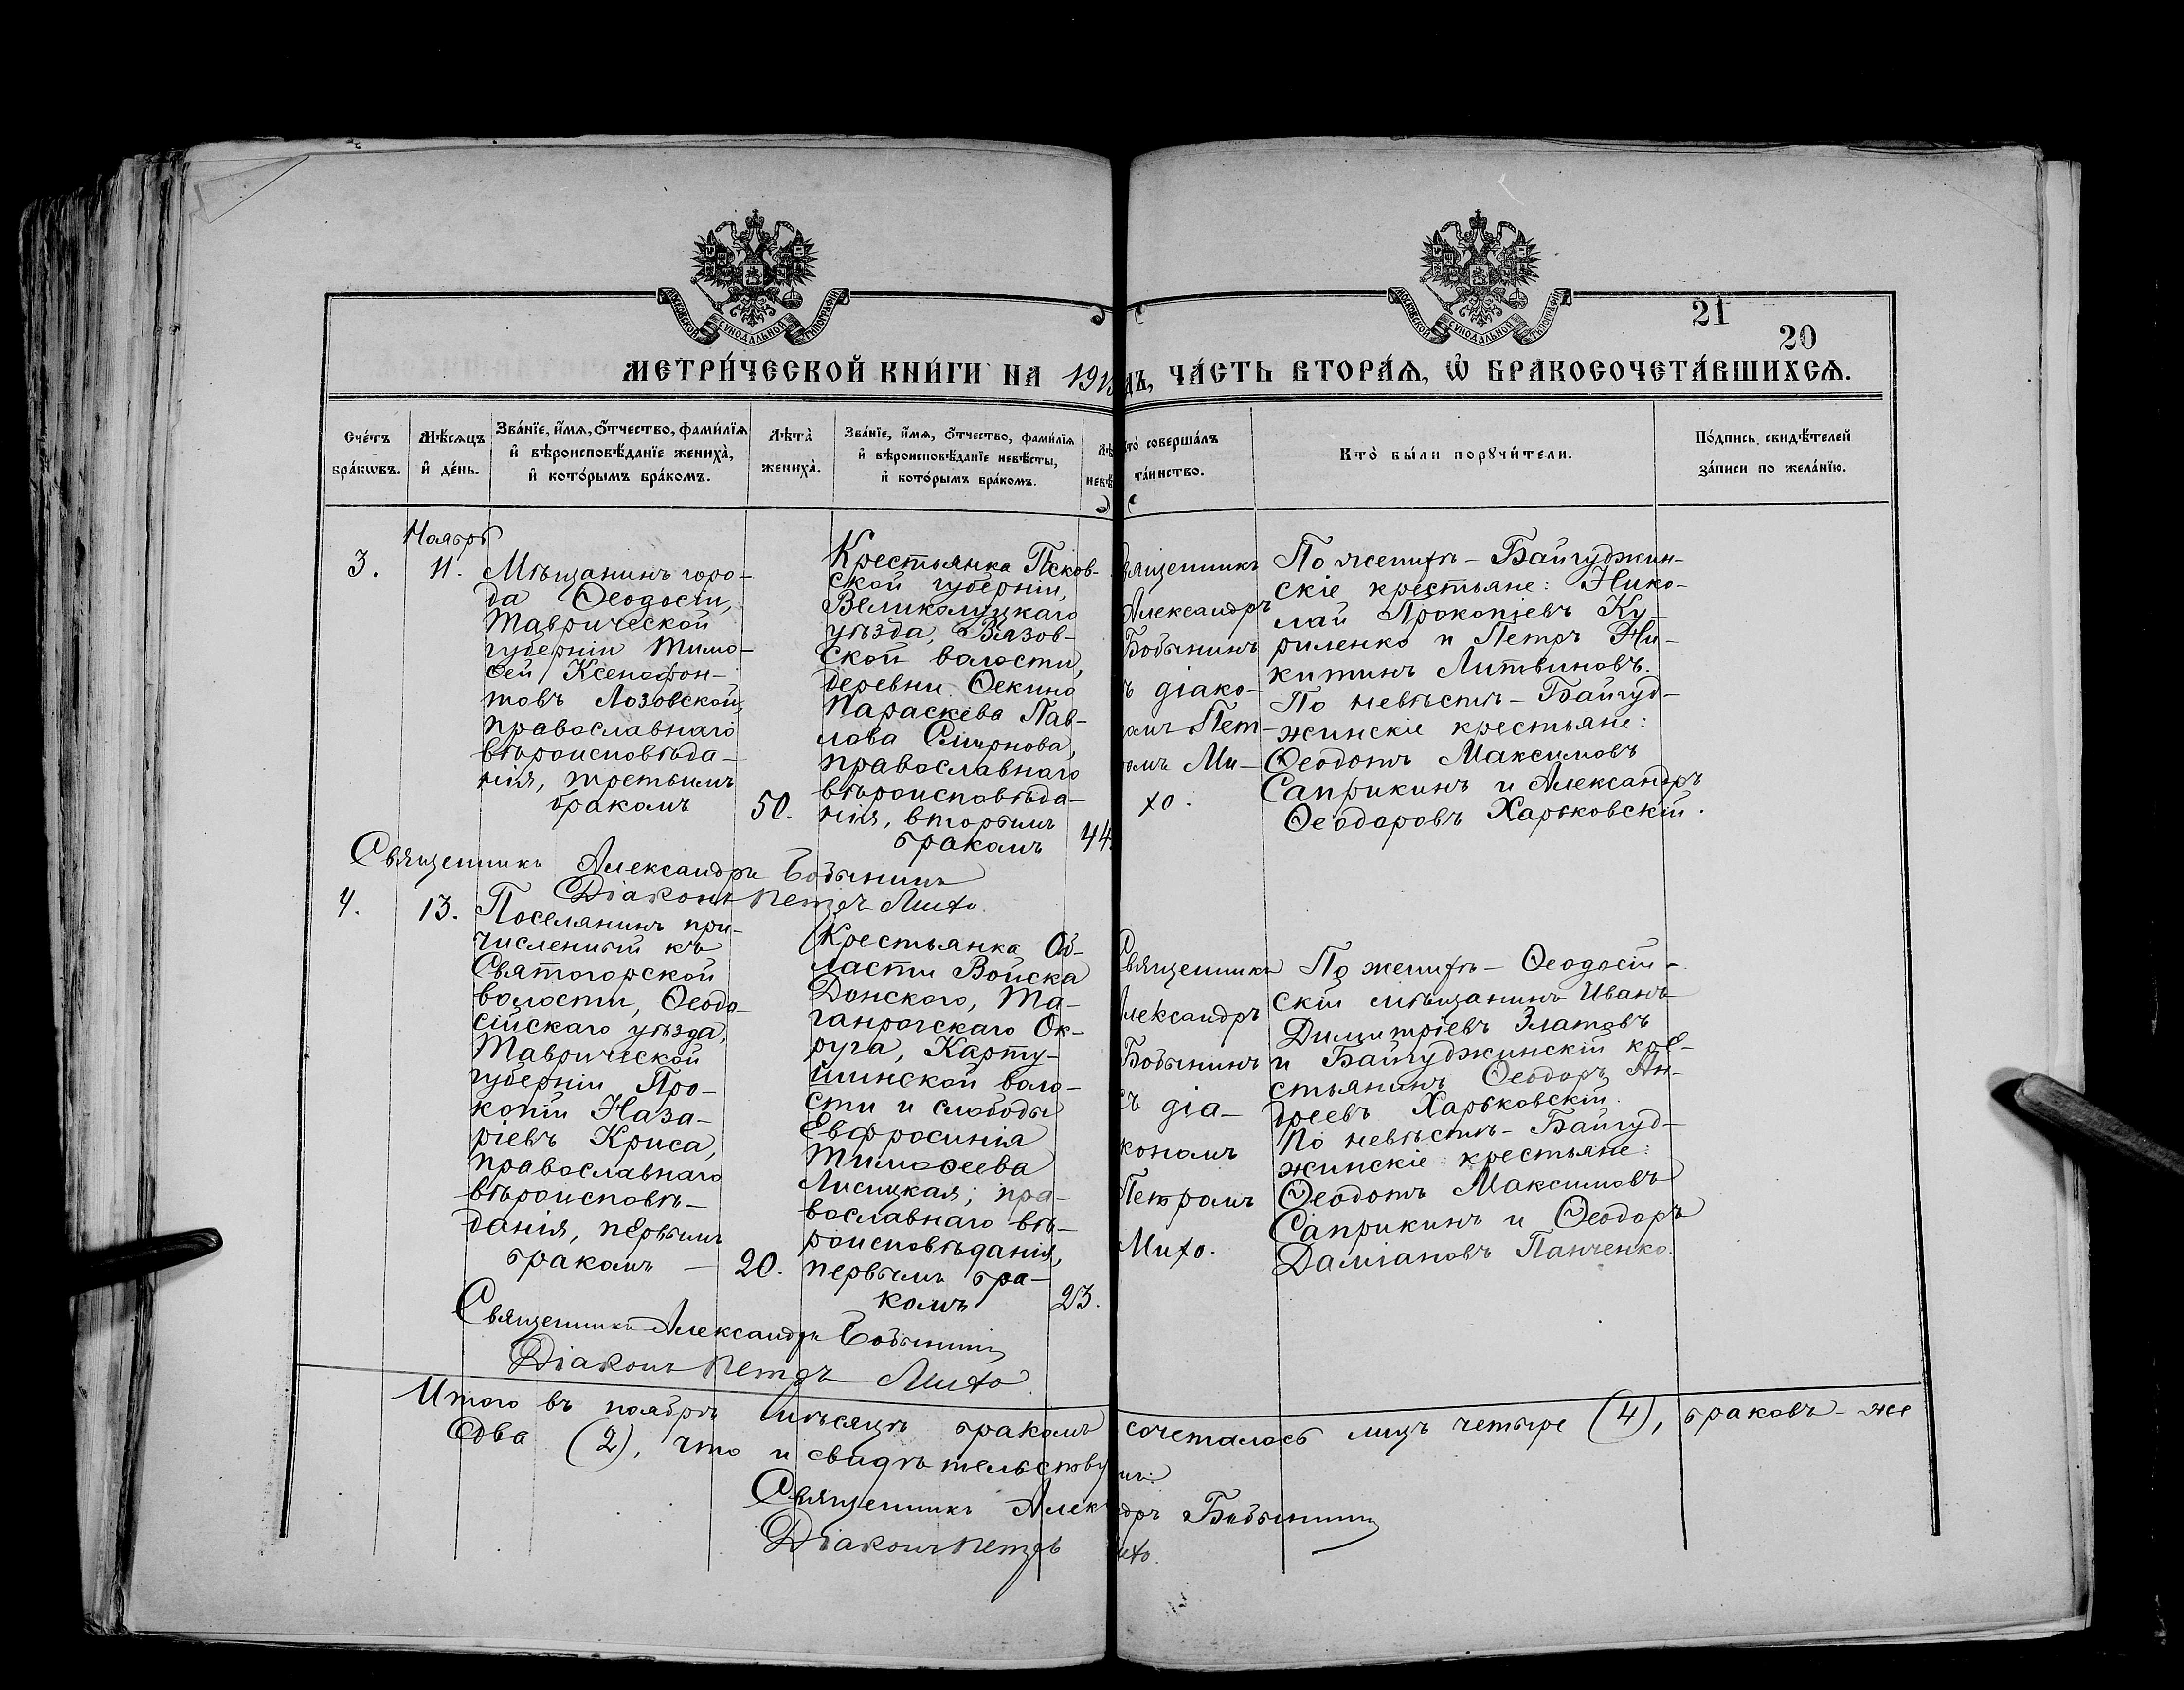 МОСКОВСКОЙ СѴНОДАЛЬНОЙ ТИПОГРАФІИ
МОСКОВСКОЙ СѴНОДАЛЬНОЙ ТИПОГРАФІИ
21
20
МЕТРИ́ЧЕСКОЙ КНИ́ГИ НА 191 ДЪ, ЧА́СТЬ ВТОРА́Ѧ, Ѡ БРАКОСОЧЕТА́ВШИХСѦ.
Сче́тъ бра́кѡвъ.
Мѣ́сѧцъ и҆ де́нь.
Зва́нїе, и҆́мѧ, ѻ҆́тчество, фами́лїѧ
и҆ вѣроисповѣ́данїе жениха̀,
и҆ кото́рымъ бра́комъ.
Лѣта̀ жениха̀.
Зва́нїе, и҆́мѧ, ѻ҆́тчество, фами́лїѧ
и҆ вѣроисповѣ́данїе невѣ́сты,
и҆ кото́рымъ бра́комъ.
Лѣ
невѣ
кто̀ соверша́лъ
та́инство.
Кто̀ бы́ли порꙋчи́тели.
По́дпись свидѣ́телей
за́писи по жела́нїю.
Ноябрь
3.
11.
Мѣщанинъ горо-
да Ѳеодосіи,
Таврической
губерніи Тимо-
ѳей Ксенофон-
товъ Лозовской,
православнаго
вѣроисповѣда-
нія, третьимъ
бракомъ
50.
Крестьянка Псков-
ской губерніи,
Великолуцкаго
уѣзда, Вязов-
ской волости,
деревни Ѳекино
Параскева Пав-
лова Смирнова,
православнаго
вѣроисповѣда-
нія, вторымъ
бракомъ
44.
вященникъ
Александръ
Бобынинъ
ъ діако-
омъ Пет-
омъ Ми-
хо.
По женихѣ - Байгуджин-
скіе крестьяне: Нико-
лай Прокопіевъ Ку-
риленко и Петръ Ни-
китинъ Литвиновъ.
По невѣстѣ - Байгуд-
жинскіе крестьяне:
Ѳеодотъ Максимовъ
Саприкинъ и Александръ
Ѳеодоровъ Харьковскій.
Священникъ Александръ Бобынинъ
Діаконъ Петръ Михо.
4.
13.
Поселянинъ при-
численный къ
Святогорской
волости, Ѳеодо-
сійскаго уѣзда,
Таврической
губерніи Про-
копій Наза-
ріевъ Криса,
православнаго
вѣроисповѣ-
данія, первымъ
бракомъ —
20.
Крестьянка Об-
ласти Войска
Донского, Та-
ганрогскаго Ок-
руга, Карту-
шинской воло-
сти и слободы
Евфросинія
Тимоѳеева
Лисицкая; пра-
вославнаго вѣ-
роисповѣданія,
первымъ бра-
комъ
23.
Священникъ
Александръ
Бобынинъ
съ діа-
кономъ
Петромъ
Михо.
По женихѣ - Ѳеодосій-
скій мѣщанинъ Иванъ
Димитріевъ Златовъ
и Байгуджинскій кре-
стьянинъ Ѳеодоръ Ан-
дреевъ Харьковскій.
По невѣстѣ - Байгуд-
жинскіе крестьяне:
Ѳеодотъ Максимовъ
Саприкинъ и Ѳеодоръ
Даміановъ Панченко.
Священникъ Александръ Бобынинъ
Діаконъ Петръ Михо.
Итого въ ноябрѣ мѣсяцѣ бракомъ сочеталось лицъ четыре (4), браковъ - же
два (2), что и свидѣтельству мъ:
Священникъ Алек ндръ Бобынинъ
Діаконъ Петръ ихо.